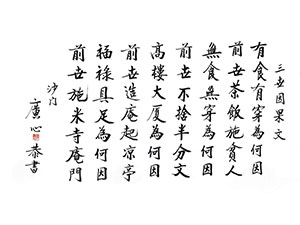 三世因果文
有食有穿為何因
前世茶飯施貧人
無食無穿為何因
前世不捨半分文
高樓大厦為何因
前世造庵起凉亭
福祿具足為何因
前世施米寺庵門
沙门
廣心恭書